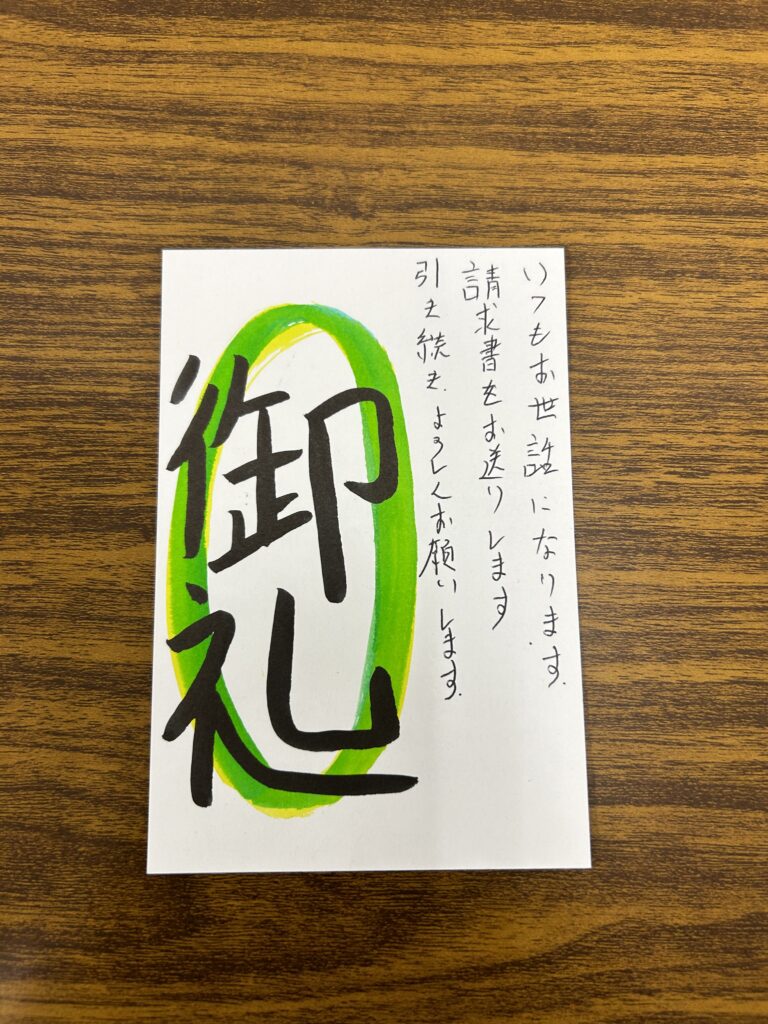 いつもお世話になります.
請求書をお送りします
引き続き、よろしくお願いします.
御礼